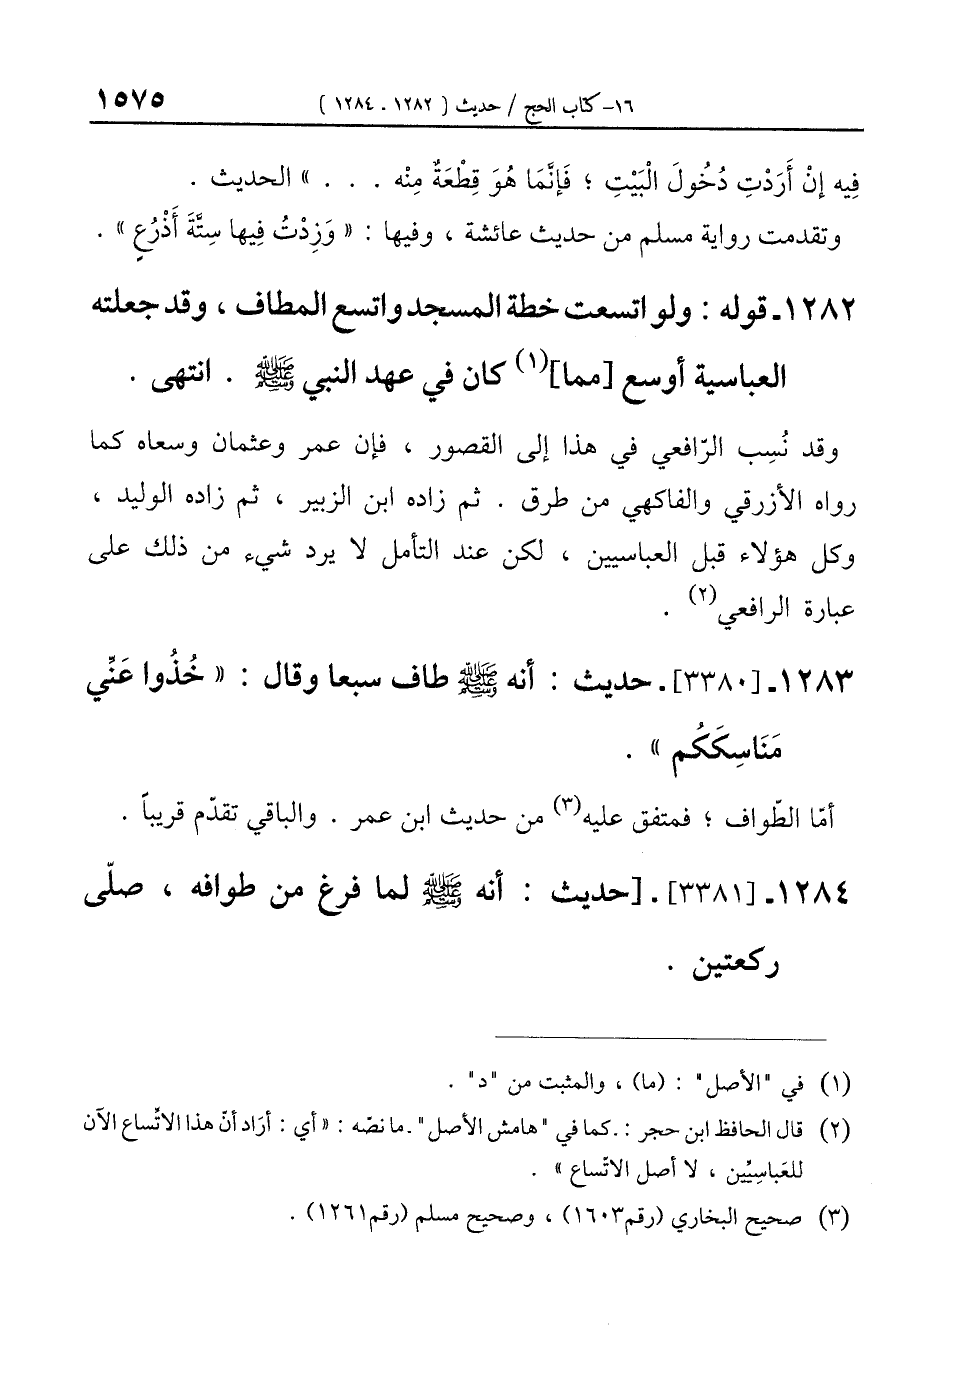 ١٦- كتاب الحج / حديث ( ١٢٨٢ - ١٢٨٤ ) ١٥٧٥
فِيه إنْ أَرَدْتِ دُخُولَ الْبَيْتِ ؛ فَإِنَّمَا هُوَ قِطْعَةٌ مِنْه . . . » الحديث .
وتقدمت رواية مسلم من حديث عائشة ، وفيها : « وَزِدْتُ فِيها سِتَّةَ أَذْرُعٍ » .
١٢٨٢ـ قوله : ولو اتسعت خطة المسجد واتسع المطاف ، وقد جعلته
العباسية أوسع [مما](١) كان في عهد النبي ﷺ . انتهى .
وقد نُسِب الرّافعي في هذا إلى القصور ، فإن عمر وعثمان وسعاه كما
رواه الأزرقي والفاكهي من طرق . ثم زاده ابن الزبير ، ثم زاده الوليد ،
وكل هؤلاء قبل العباسيين ، لكن عند التأمل لا يرد شيء من ذلك على
عبارة الرافعي(٢) .
١٢٨٣ـ [٣٣٨٠]. حديث : أنه ﷺ طاف سبعا وقال : « خُذُوا عَنِّي
مَنَاسِكَكُم » .
أمّا الطّواف ؛ فمتفق عليه(٣) من حديث ابن عمر . والباقي تقدّم قريباً .
١٢٨٤ـ [٣٣٨١]. [حديث : أنه ﷺ لما فرغ من طوافه ، صلّى
ركعتين .
(١) في "الأصل" : (ما) ، والمثبت من "د" .
(٢) قال الحافظ ابن حجر :ـ كما في "هامش الأصل"ـ ما نصّه : « أي : أرَاد أنّ هذا الاتّساع الآن
للعَباسِيِّين ، لا أصل الاتّساع » .
(٣) صحيح البخاري (رقم١٦٠٣) ، وصحيح مسلم (رقم١٢٦١) .